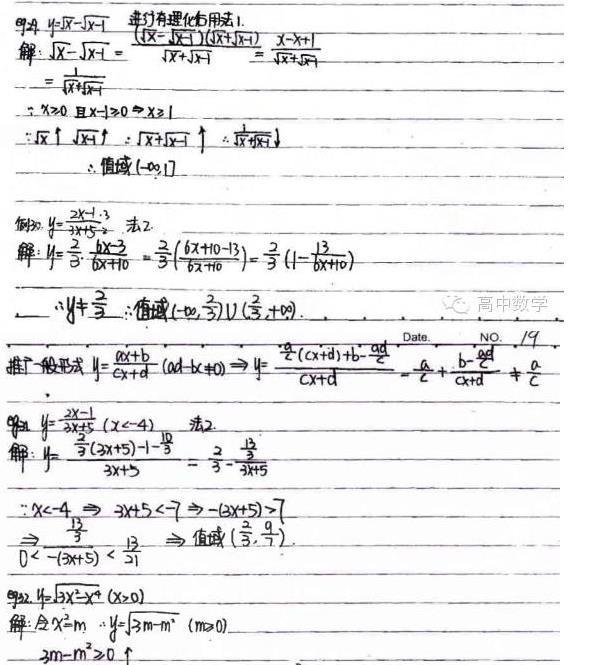 例29. y=√x-√x-1 进行有理化后用法1.
解: √x-√x-1 = (√x-√x-1)(√x+√x-1)/√x+√x-1 = x-x+1/√x+√x-1
= 1/√x+√x-1
∵ x≥0 且 x-1≥0 ⇒ x≥1
∵ √x↑ √x-1↑ ∴ √x+√x-1 ↑ ∴ 1/√x+√x-1↓
∴ 值域(-∞,1]
例30. y=2x-1·3/3x+5·2 法2.
解: y=2/3·6x-3/6x+10 = 2/3(6x+10-13/6x+10) = 2/3(1-13/6x+10)
∴ y≠2/3 ∴ 值域(-∞,2/3)∪(2/3,+∞).
高中数学
Date. NO. 19
推广一般形式 y=ax+b/cx+d (ad-bc≠0) ⇒ y= a/c(cx+d)+b-ad/c/cx+d = a/c + b-ad/c/cx+d ≠ a/c
例31. y=2x-1/3x+5 (x<-4) 法2.
解: y= 2/3(3x+5)-1-10/3/3x+5 = 2/3 - 13/3/3x+5
∵ x<-4 ⇒ 3x+5<-7 ⇒ -(3x+5)>7
⇒ 0< 13/3/-(3x+5) < 13/21 ⇒ 值域(2/3,9/7).
例32. y=√3x²-x⁴ (x>0)
解: 令x²=m ∴ y=√3m-m² (m≥0)
3m-m²≥0 ↑